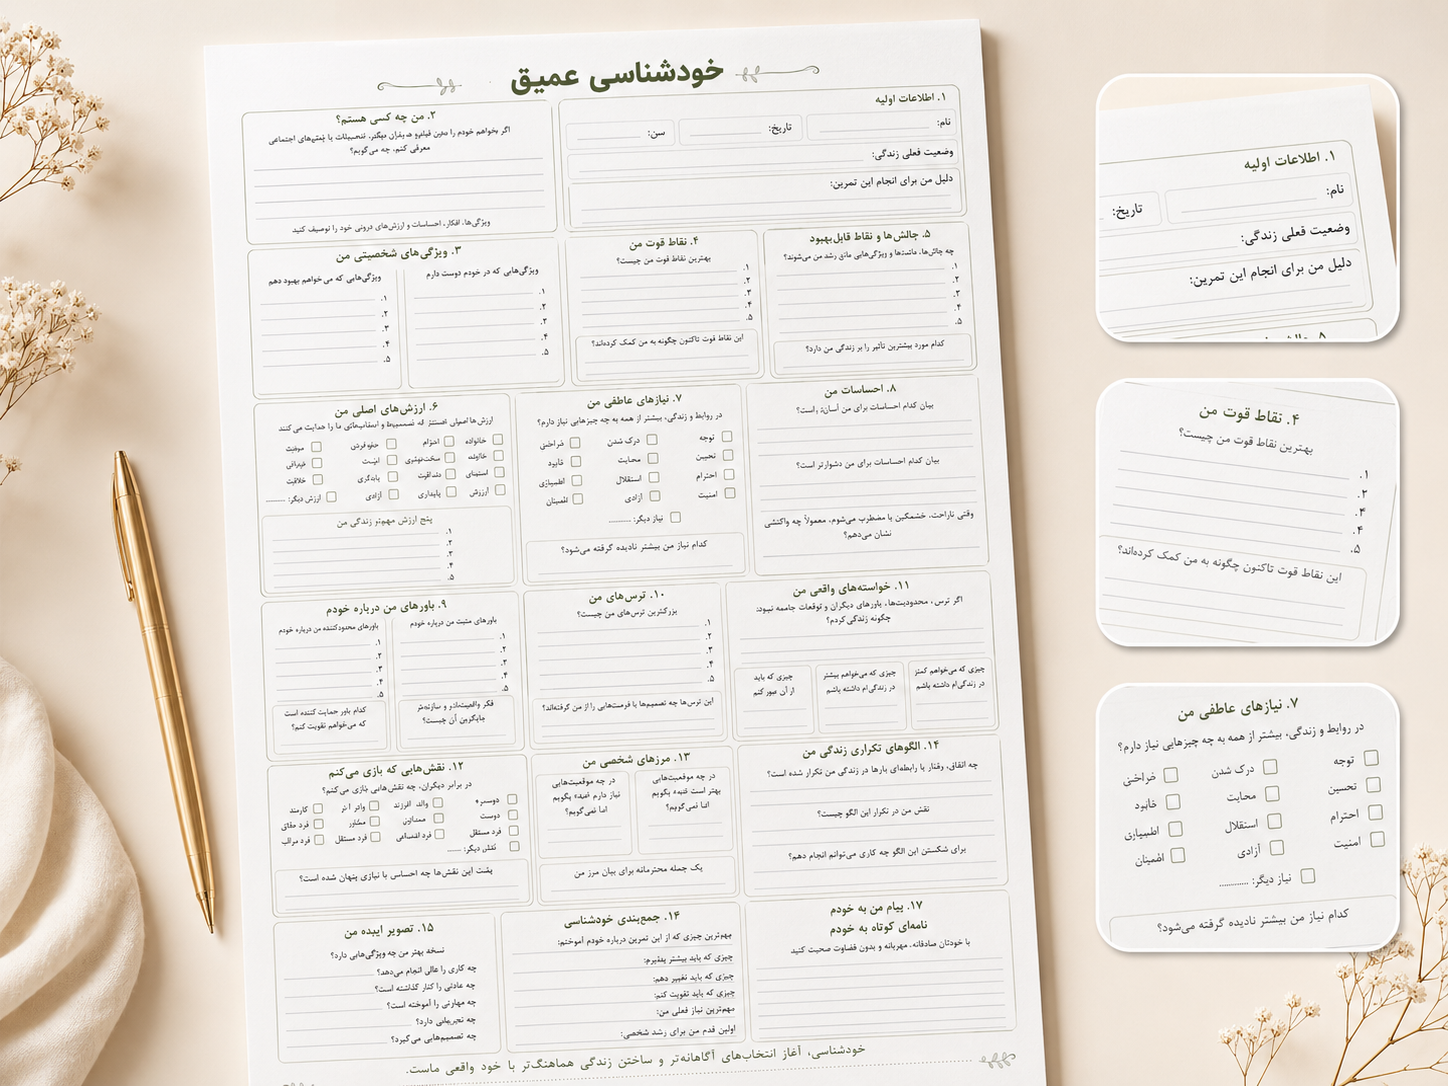 خودشناسی عمیق
۱. اطلاعات اولیه
نام:
تاریخ:
سن:
وضعیت فعلی زندگی:
دلیل من برای انجام این تمرین:
۲. من چه کسی هستم؟
اگر بخواهم خودم را بدون اجتماعی
معرفی کنم، چه می‌گویم؟
ویژگی‌ها، افکار، احساسات و ارزش‌های درونی خود را توصیف کنید
۳. ویژگی‌های شخصیتی من
ویژگی‌هایی که در خودم دوست دارم
۱.
۲.
۳.
۴.
۵.
ویژگی‌هایی که می‌خواهم بهبود دهم
۱.
۲.
۳.
۴.
۵.
۴. نقاط قوت من
بهترین نقاط قوت من چیست؟
۱.
۲.
۳.
۴.
۵.
این نقاط قوت تاکنون چگونه به من کمک کرده‌اند؟
۵. چالش‌ها و نقاط قابل‌بهبود
چه چالش‌ها، و ویژگی‌هایی مانع رشد من می‌شوند؟
۱.
۲.
۳.
۴.
۵.
کدام مورد بیشترین تأثیر را بر زندگی من دارد؟
۶. ارزش‌های اصلی من
خانواده
احترام
آزادی
پایداری
ارزش
خلاقیت
ارزش دیگر: ........
پنج ارزش مهم‌تر زندگی من
۱.
۲.
۳.
۴.
۵.
۷. نیازهای عاطفی من
در روابط و زندگی، بیشتر از همه به چه چیزهایی نیاز دارم؟
توجه
درک شدن
تحسین
احترام
استقلال
امنیت
آزادی
نیاز دیگر: ............
کدام نیاز من بیشتر نادیده گرفته می‌شود؟
۸. احساسات من
بیان کدام احساسات برای من آسان‌تر است؟
بیان کدام احساسات برای من دشوارتر است؟
وقتی ناراحت، خشمگین یا مضطرب می‌شوم، معمولاً چه واکنشی
نشان می‌دهم؟
۹. باورهای من درباره خودم
باورهای مثبت من درباره خودم
۱.
۲.
۳.
۴.
۵.
باورهای محدودکننده من درباره خودم
۱.
۲.
۳.
۴.
۵.
جایگزین آن چیست؟
کدام باور حمایت کننده است
که می‌خواهم تقویت کنم؟
۱۰. ترس‌های من
بزرگترین ترس‌های من چیست؟
۱.
۲.
۳.
۴.
۵.
این ترس‌ها چه تصمیم‌ها یا فرصت‌هایی را از من گرفته‌اند؟
۱۱. خواسته‌های واقعی من
اگر ترس، محدودیت‌ها، باورهای دیگران و توقعات جامعه نبود:
چگونه زندگی کردم؟
چیزی که می‌خواهم کمتر
در زندگی‌ام داشته باشم
چیزی که می‌خواهم بیشتر
در زندگی‌ام داشته باشم
چیزی که باید
از آن عبور کنم
۱۲. نقش‌هایی که بازی می‌کنم
در برابر دیگران، چه نقش‌هایی بازی می‌کنم؟
دوست
کارمند
فرد مستقل
فرد مستقل
نقش دیگر: ....
پشت این نقش‌ها چه احساس یا نیازی پنهان شده است؟
۱۳. مرزهای شخصی من
در چه موقعیت‌هایی
بهتر است «نه» بگویم
اما نمی‌گویم؟
در چه موقعیت‌هایی
نیاز دارم بگویم
اما نمی‌گویم؟
یک جمله محترمانه برای بیان مرز من
۱۴. الگوهای تکراری زندگی من
چه اتفاق، رفتار یا رابطه‌ای بارها در زندگی من تکرار شده است؟
نقش من در تکرار این الگو چیست؟
برای شکستن این الگو چه کاری می‌توانم انجام دهم؟
۱۵. تصویر آینده من
نسخه بهتر من چه ویژگی‌هایی دارد؟
چه کاری را عالی انجام می‌دهد؟
چه عادتی را کنار گذاشته است؟
چه مهارتی را آموخته است؟
چه تجربیاتی دارد؟
چه تصمیم‌هایی می‌گیرد؟
۱۴. جمع‌بندی خودشناسی
مهم‌ترین چیزی که از این تمرین درباره خودم آموختم:
چیزی که باید بیشتر بپذیرم:
چیزی که باید تغییر دهم:
چیزی که باید تقویت کنم:
مهم‌ترین نیاز فعلی من:
اولین قدم من برای رشد شخصی:
۱۷. پیام من به خودم
نامه‌ای کوتاه به خودم
با خودتان صادقانه، مهربانه و بدون قضاوت صحبت کنید
خودشناسی، آغاز انتخاب‌های آگاهانه‌تر و ساختن زندگی هماهنگ‌تر با خود واقعی ماست.
۱. اطلاعات اولیه
نام:
تاریخ:
وضعیت فعلی زندگی:
دلیل من برای انجام این تمرین:
۴. نقاط قوت من
بهترین نقاط قوت من چیست؟
۱.
۲.
۴.
۴.
۵.
این نقاط قوت تاکنون چگونه به من کمک کرده‌اند؟
۷. نیازهای عاطفی من
در روابط و زندگی، بیشتر از همه به چه چیزهایی نیاز دارم؟
توجه
درک شدن
تحسین
محایت
احترام
استقلال
امنیت
آزادی
نیاز دیگر: ............
کدام نیاز من بیشتر نادیده گرفته می‌شود؟